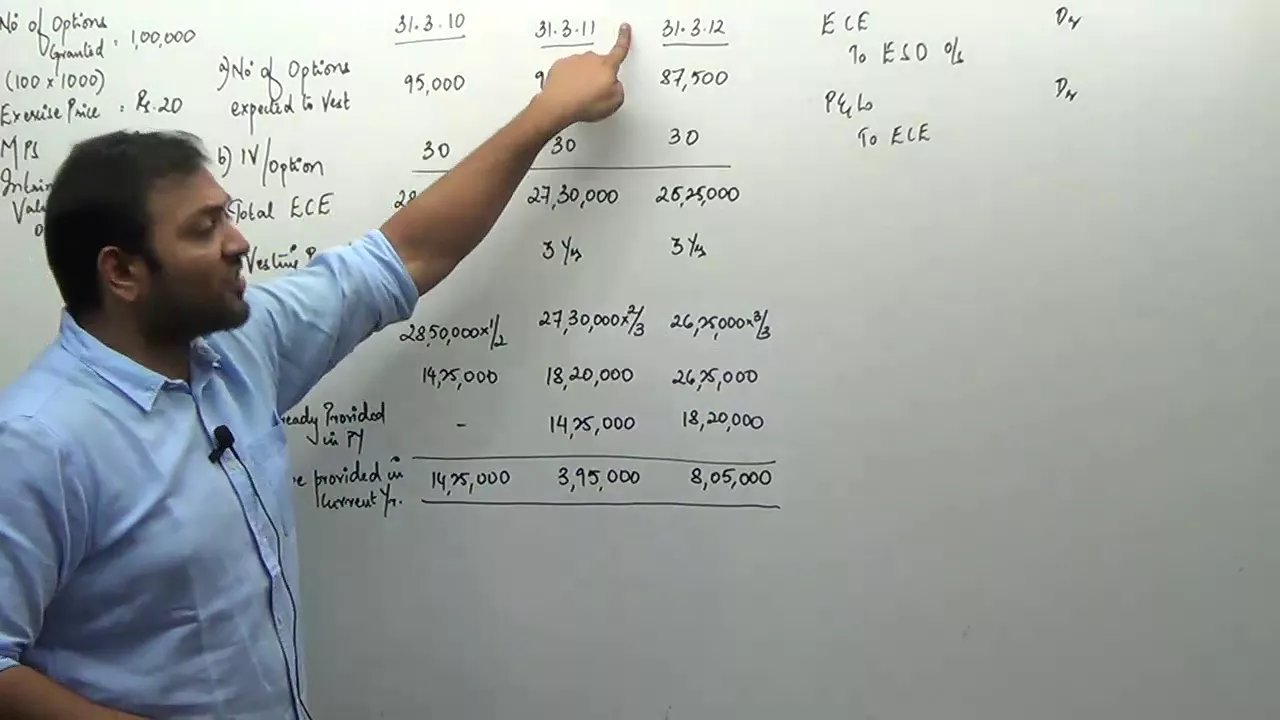 No of Options
Granted = 1,00,000
(100 x 1000)
Exercise Price = Rs. 20
MPS
31.3.10 31.3.11 31.3.12
a) No of Options
expected to Vest 95,000 9 87,500
b) IV/Option 30 30 30
Total ECE 28 27,30,000 26,25,000
Vesting P 3 Yrs 3 Yrs
28,50,000x1/2 27,30,000x2/3 26,25,000x3/3
14,25,000 18,20,000 26,25,000
ready Provided
in PY - 14,25,000 18,20,000
e provided in
Current Yr. 14,25,000 3,95,000 8,05,000
ECE Dr
To ESO o/s
P&L Dr
To ECE